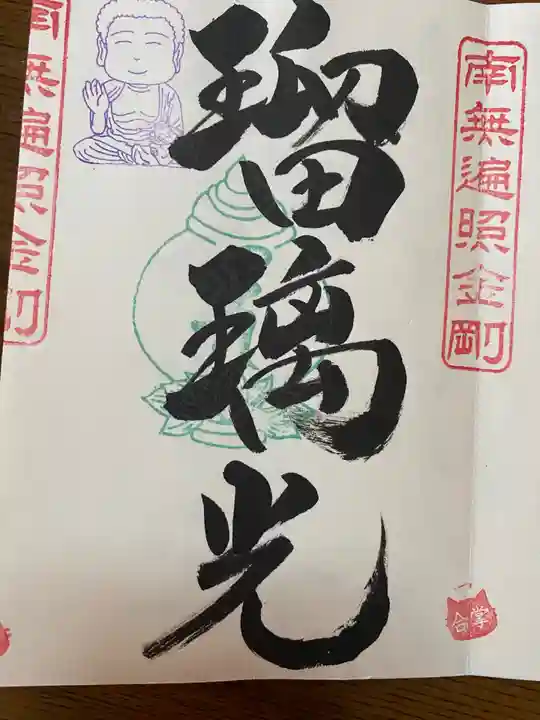 南無遍照金剛
瑠璃光
合掌
南無遍照金剛